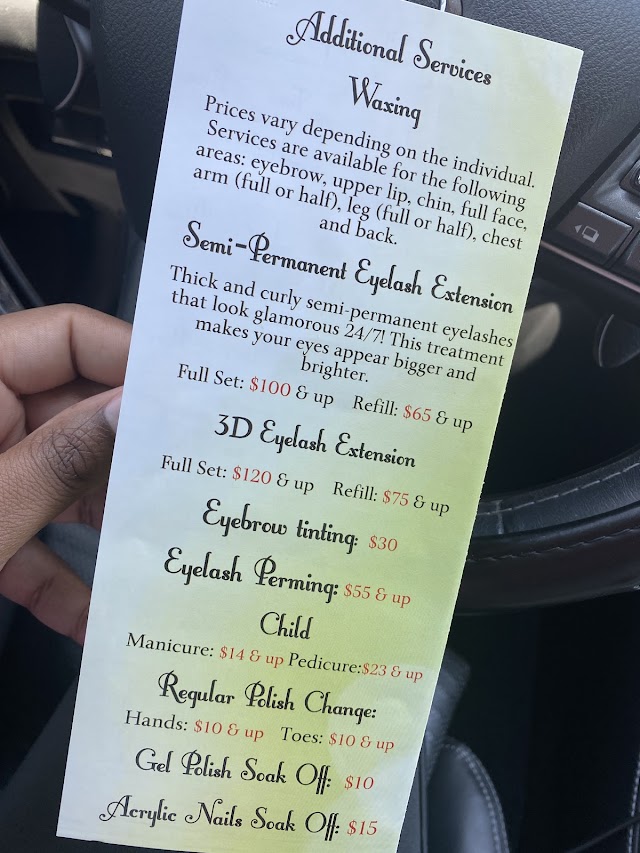 Additional Services
Waxing
Prices vary depending on the individual.
Services are available for the following
areas: eyebrow, upper lip, chin, full face,
arm (full or half), leg (full or half), chest
and back.
Semi-Permanent Eyelash Extension
Thick and curly semi-permanent eyelashes
that look glamorous 24/7! This treatment
makes your eyes appear bigger and
brighter.
Full Set: $100 & up Refill: $65 & up
3D Eyelash Extension
Full Set: $120 & up Refill: $75 & up
Eyebrow tinting: $30
Eyelash Perming: $55 & up
Child
Manicure: $14 & up Pedicure:$23 & up
Regular Polish Change:
Hands: $10 & up Toes: $10 & up
Gel Polish Soak Off: $10
Acrylic Nails Soak Off: $15